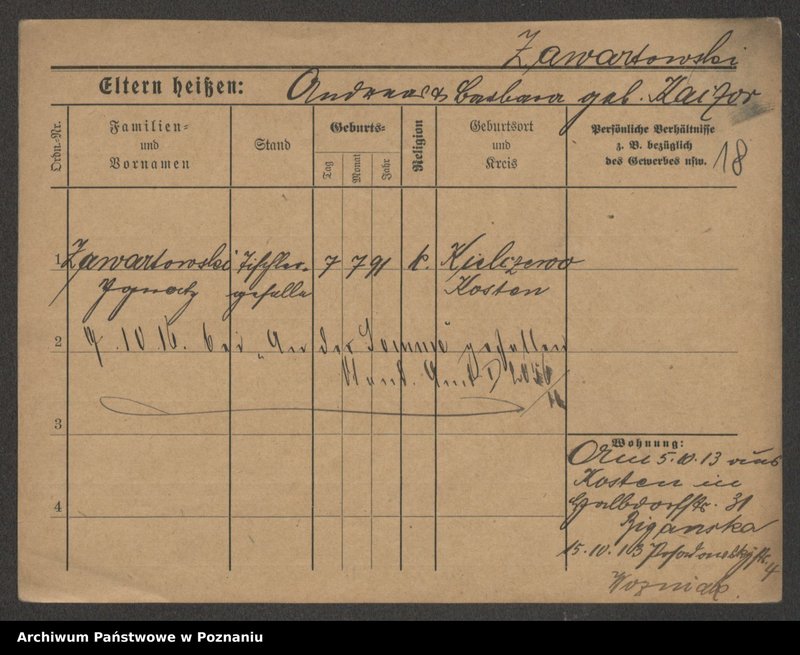 Zawartowski
Eltern heißen: Andreas & Barbara geb. Kaizor
Ordn.-Nr.
Familien-
und
Vornamen
Stand
Geburts-
Tag
Monat
Jahr
Religion
Geburtsort
und
Kreis
Persönliche Verhältnisse
z. B. bezüglich
des Gewerbes usw.
18
1 Zawartowski Tischler- 7 7 91 k. Kielczewo
Ignatz geselle Kosten
2 7.10.16. bei „An der Somme" gefallen
Stand. Amt
3
4
Wohnung:
Am 5.10.13 aus
Kosten in
Halbdorfstr. 31
Ziganska
15.10.13 Posadowskystr. 4
Wozniak.
Archiwum Państwowe w Poznaniu